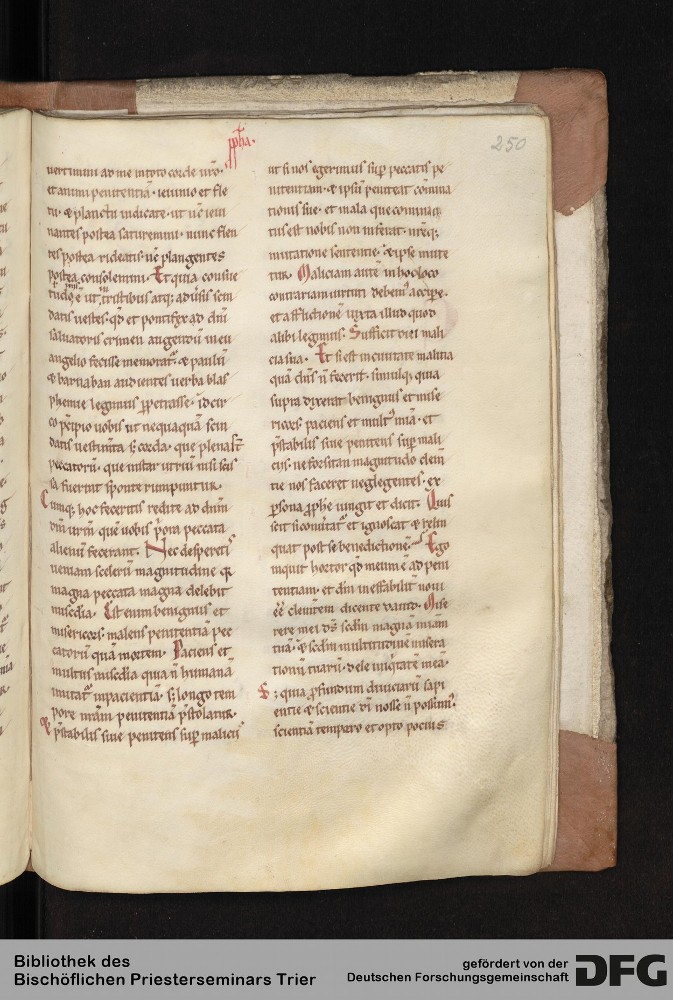 ppħa.
250
uertimini ad me in toto corde uro.
et animi penitentiā. ieiunio et fle
tu. & planctu indicate. ut nc̄ ieiu
nantes postea saturemini. nunc flen
tes postea rideatis. nc̄ plangentes
postea consolemini. Et quia consue
tudo ē ut in tristibus atq; aduersis scin
datis uestes. qd̄ et pontifex ad dnī
saluatoris crimen augendū in eu
angelio fecisse memorat᷑. & paulū
& barnaban audientes uerba blas
phemie legimus ppetrasse. idcir
co p̄cipio uobis ut nequaquā scin
datis uestimta s; corda. que plena st̄
peccatorū. que instar utriū nisi scis
sa fuerint sponte rumpuntur.
Cumq; hoc feceritis redite ad dnm̄
dm̄ urm̄ quē uobis p̄ora peccata
alienū fecerant. Nec desperetis
ueniam scelerū magnitudine qr
magna peccata magna delebit
misc̄dia. Est enim benignus et
misericors. malens penitentiā pec
catorū quā mortem. Paciens et
multus misc̄dia qua n̄ humanā
imitat᷑ inpacientiā. s; longo tem
pore nrām penitentiā p̄stolatur.
& p̄stabilis siue penitens sup̄ malicis
ut si nos egerimus sup̄ peccatis pe
nitentiam. & ipsū peniteat cōmina
tionis sue. et mala que cominaq
tus est nobis non inferat. nr̄eq;
mutatione sententie. & ipse mute
tur. Maliciam autē in hoc loco
contrariam uirtuti debem᷒ accipe.
et afflictionē iuxta illud quod
alibi legimus. Sufficit diei mali
cia sua. Et si est in ciuitate malitia
quā dn̄s n̄ fecerit. simulq; quia
supra dixerat benignus et mise
ricors paciens et mult᷒ miā. et
p̄stabilis siue penitens sup̄ mali
ciis. ne forsitan magnitudo clem̄
tie nos faceret neglegentes. ex
psona ppħe iungit et dicit. Quis
scit si conuertat᷑ et ignoscat & relin
quat post se benedictionē. Ego
inquit hector qd̄ meum ē ad peni
tentiam. et dm̄ inestabilit᷑ noui
eē clemtem dicente dauid. Mise
rere mei ds̄ scdm̄ magnā miam
tuā. & scdm̄ multitudinē misera
tionū tuarū. dele iniq̄tatē meā.
S; quia pfundum diuiciarū sapi
entie & scientie di nosse n̄ possum᷒.
scientiā tempero et opto pocius
Bibliothek des
Bischöflichen Priesterseminars Trier
gefördert von der
Deutschen Forschungsgemeinschaft
DFG